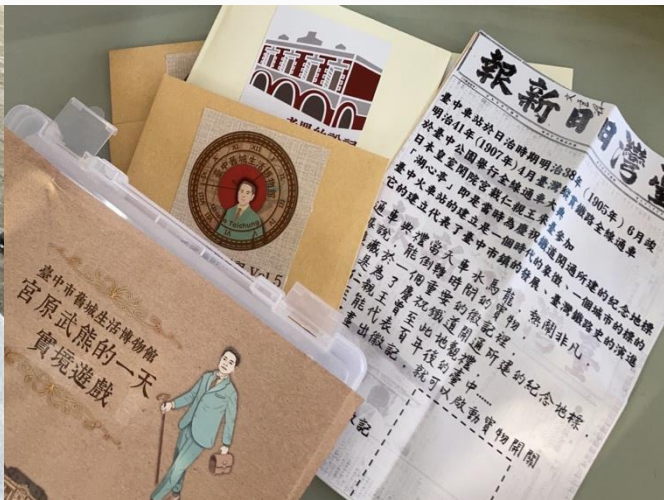 臺中市舊城生活博物館
宮原武熊的一天
實境遊戲
臺中舊城生活博物館
Taichung
Vol.5
報新日日灣臺
臺中車站於日治時期明治38年(1905年)6月竣
明治41年(1907年)4月臺灣縱貫鐵路全線通車
於臺中公園舉行全線通車 典
日本皇室閑院宮載仁親王來 參加
「湖心亭」即是當時為慶祝鐵道開通所建的紀念地標
臺中火車站的建立是一個時代的象徵、一個城市的標的
它的建立代表了臺中市鎮的發展、臺灣鐵路史的演進
通車典禮當天車水馬龍， 非凡
說能倒轉時間的寶物，
藏於一個重要的徵記裡，
是為了慶祝鐵道開通所建的紀念地標，
仁親王曾至此地觀禮，
能代表百年後的臺中......
畫出徵記，就可以啟動寶物開關
徵記